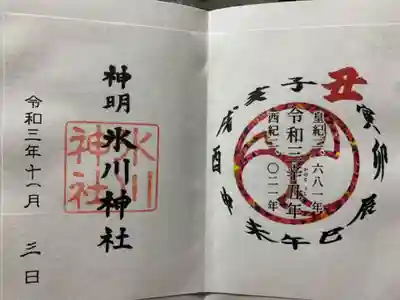 子
丑
寅
卯
辰
巳
午
未
申
酉
戌
亥
皇紀二、六八一年
令和三辛丑年
西紀二、〇二一年
神明
氷川神社
氷川
神社
令和三年十一月 三日